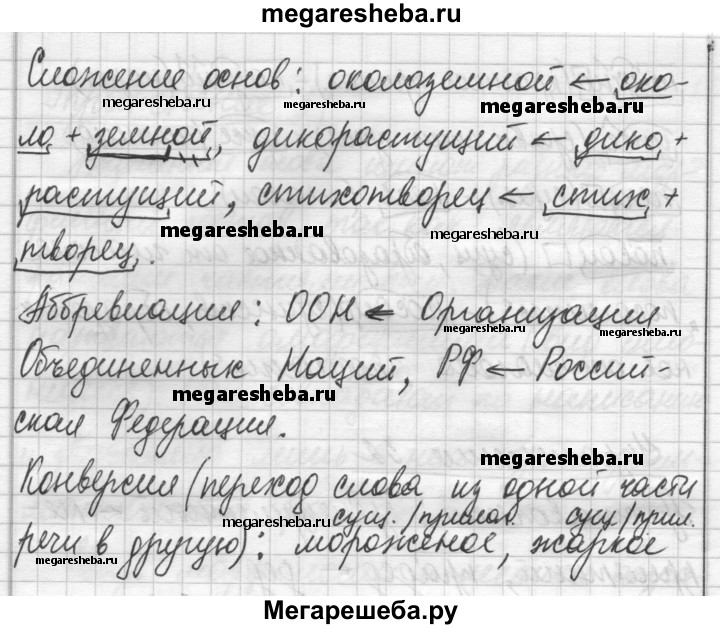 megaresheba.ru
Сложение основ: околоземной ← око-
megaresheba.ru megaresheba.ru megaresheba.ru
ло + земной, дикорастущий ← дико +
растущий, стихотворец ← стих +
megaresheba.ru megaresheba.ru
творец.
Аббревиация: ООН ← Организация
megaresheba.ru megaresheba.ru
Объединенных Наций, РФ ← Россий-
megaresheba.ru
ская Федерация.
megaresheba.ru
Конверсия (переход слова из одной части
megaresheba.ru сущ./прилаг. сущ/прил.
речи в другую): мороженое, жаркое
megaresheba.ru megaresheba.ru
Мегарешеба.ру